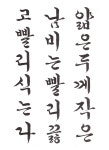 얇은두께작은
남비는빨리끓
고빨리식는다